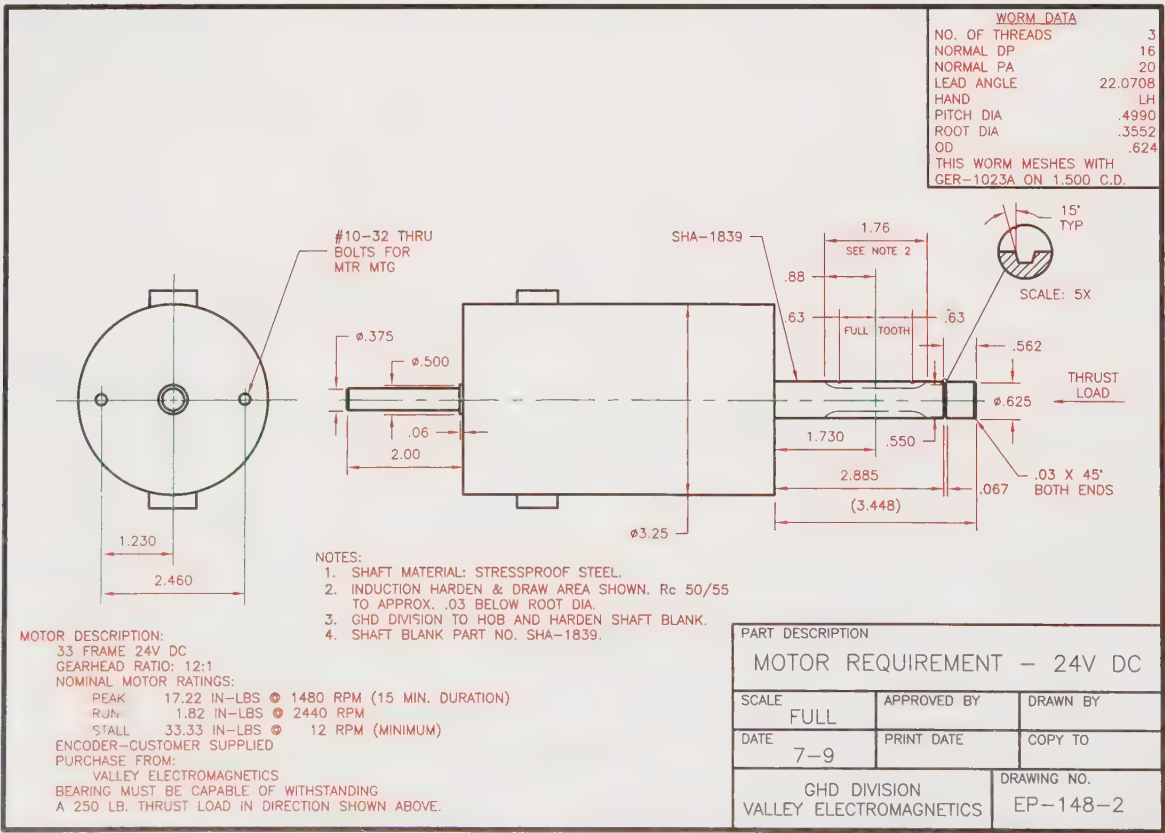 WORM DATA
NO. OF THREADS 3
NORMAL DP 16
NORMAL PA 20
LEAD ANGLE 22.0708
HAND LH
PITCH DIA .4990
ROOT DIA .3552
OD .624
THIS WORM MESHES WITH
GER-1023A ON 1.500 C.D.
#10-32 THRU
BOLTS FOR
MTR MTG
SHA-1839
1.76
SEE NOTE 2
15°
TYP
.88
SCALE: 5X
.63
FULL TOOTH
.63
ø.375
ø.500
.562
THRUST
LOAD
ø.625
.06
2.00
1.730
.550
2.885
.067
.03 X 45°
BOTH ENDS
(3.448)
ø3.25
1.230
2.460
NOTES:
1. SHAFT MATERIAL: STRESSPROOF STEEL.
2. INDUCTION HARDEN & DRAW AREA SHOWN. Rc 50/55
TO APPROX. .03 BELOW ROOT DIA.
3. GHD DIVISION TO HOB AND HARDEN SHAFT BLANK.
4. SHAFT BLANK PART NO. SHA-1839.
MOTOR DESCRIPTION:
33 FRAME 24V DC
GEARHEAD RATIO: 12:1
NOMINAL MOTOR RATINGS:
PEAK 17.22 IN-LBS @ 1480 RPM (15 MIN. DURATION)
RUN 1.82 IN-LBS @ 2440 RPM
STALL 33.33 IN-LBS @ 12 RPM (MINIMUM)
ENCODER-CUSTOMER SUPPLIED
PURCHASE FROM:
VALLEY ELECTROMAGNETICS
BEARING MUST BE CAPABLE OF WITHSTANDING
A 250 LB. THRUST LOAD IN DIRECTION SHOWN ABOVE.
PART DESCRIPTION
MOTOR REQUIREMENT - 24V DC
SCALE
FULL
APPROVED BY
DRAWN BY
DATE
7-9
PRINT DATE
COPY TO
GHD DIVISION
VALLEY ELECTROMAGNETICS
DRAWING NO.
EP-148-2